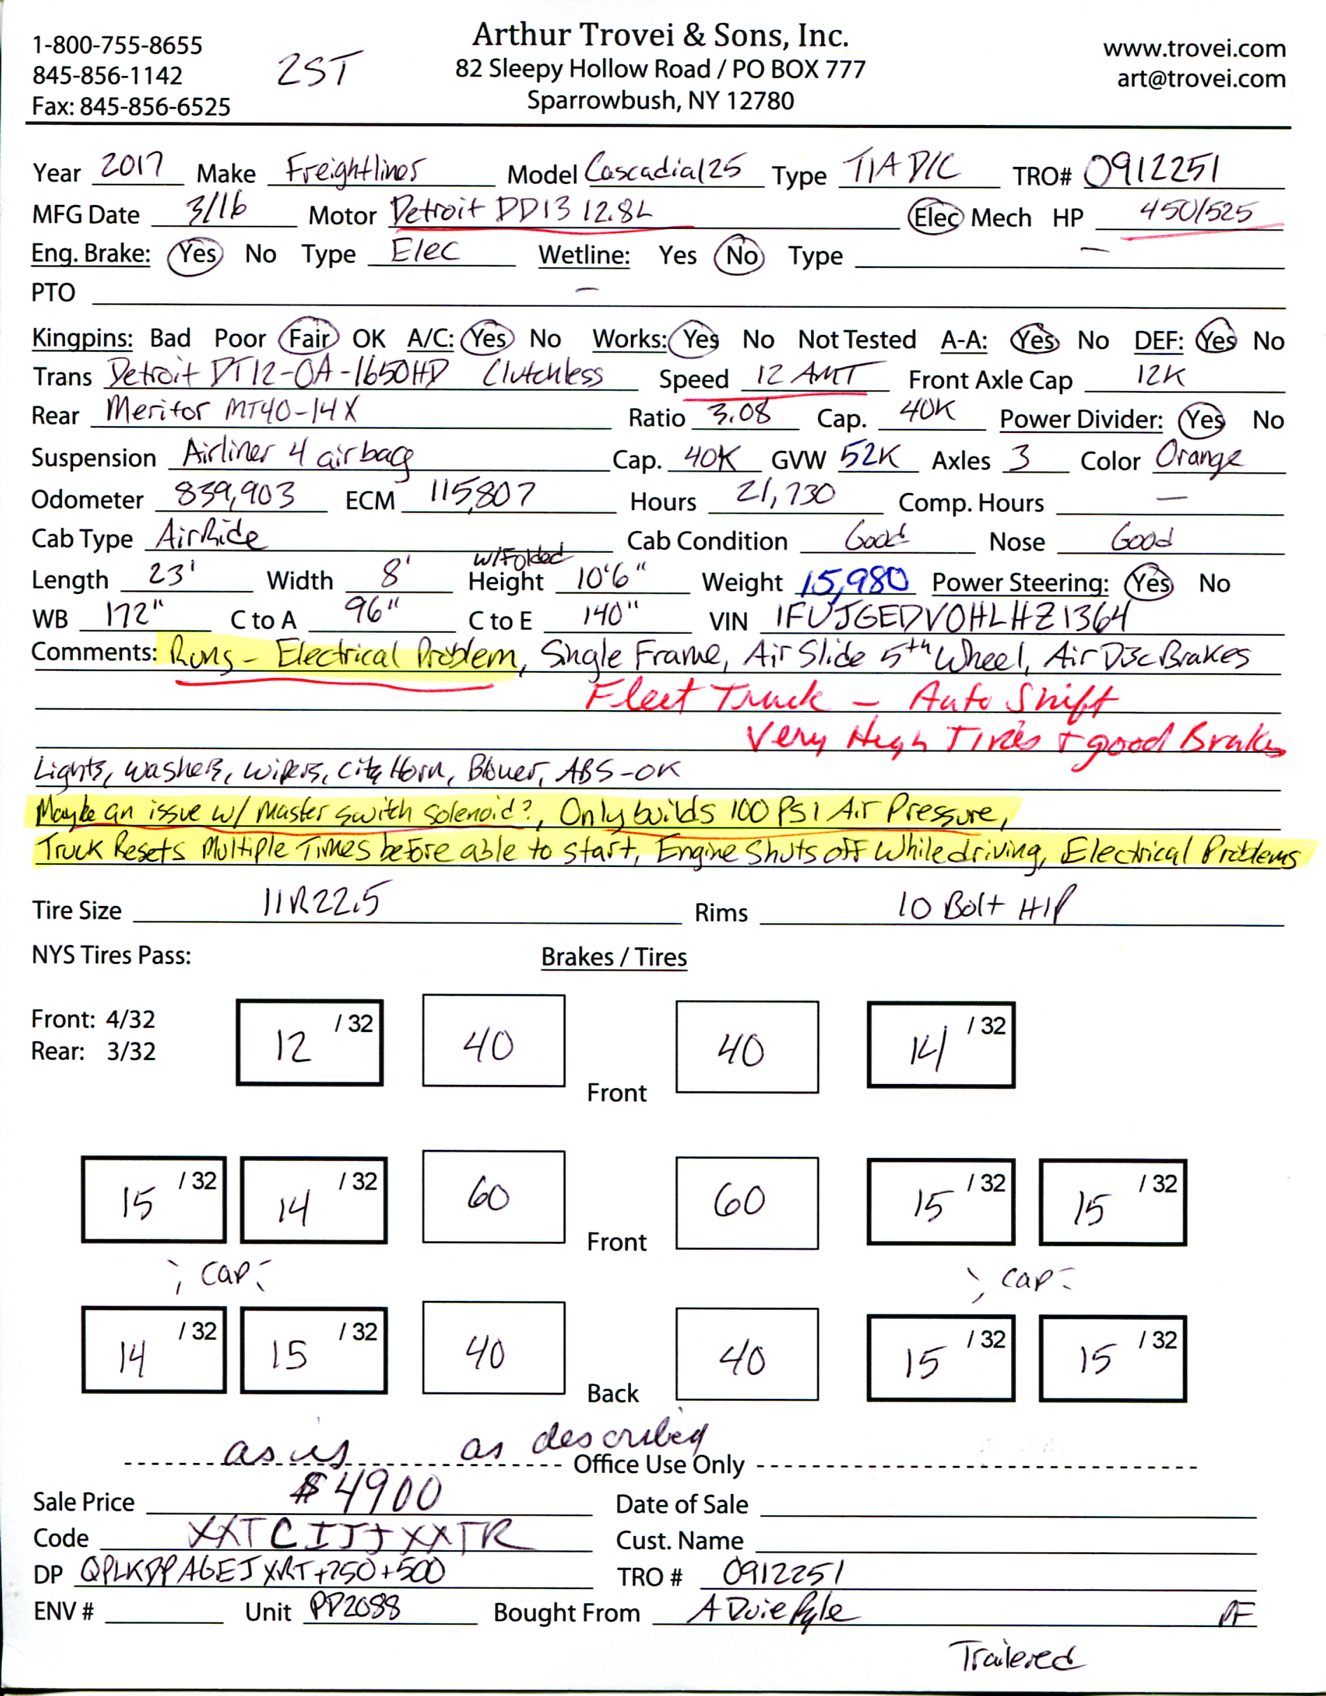 1-800-755-8655
845-856-1142
Fax: 845-856-6525
2ST
Arthur Trovei & Sons, Inc.
82 Sleepy Hollow Road / PO BOX 777
Sparrowbush, NY 12780
www.trovei.com
art@trovei.com
Year 2017 Make Freightliner Model Cascadia125 Type T/A D/C TRO# 0912251
MFG Date 3/16 Motor Detroit DD13 12.8L Elec Mech HP 450/525
Eng. Brake: Yes No Type Elec Wetline: Yes No Type —
PTO —
Kingpins: Bad Poor Fair OK A/C: Yes No Works: Yes No Not Tested A-A: Yes No DEF: Yes No
Trans Detroit DT12-OA-1650HD Clutchless Speed 12 AMT Front Axle Cap 12K
Rear Meritor MT40-14X Ratio 3.08 Cap. 40K Power Divider: Yes No
Suspension Airliner 4 airbag Cap. 40K GVW 52K Axles 3 Color Orange
Odometer 839,903 ECM 115,807 Hours 21,730 Comp. Hours —
Cab Type AirRide Cab Condition Good Nose Good
Length 23' Width 8' w/Folded Height 10'6" Weight 15,980 Power Steering: Yes No
WB 172" C to A 96" C to E 140" VIN 1FUJGEDV0HLHZ1364
Comments: Runs - Electrical Problem, Single Frame, Air Slide 5th Wheel, Air Disc Brakes
Fleet Truck - Auto Shift
Very High Tires + good Brakes
Lights, washers, wipers, city Horn, Blower, ABS-OK
Maybe an issue w/ Master switch Solenoid?, Only builds 100 PSI Air Pressure,
Truck Resets Multiple Times before able to start, Engine Shuts off While driving, Electrical Problems
Tire Size 11R22.5 Rims 10 Bolt H/P
NYS Tires Pass: Brakes / Tires
Front: 4/32
Rear: 3/32
12 /32 40 40 14 /32
Front
15 /32 14 /32 60 60 15 /32 15 /32
Front
Cap Cap
14 /32 15 /32 40 40 15 /32 15 /32
Back
as is as described
Office Use Only
Sale Price $4900 Date of Sale
Code XXTCIJJXXTR Cust. Name
DP QPLKDPAGEJXRT+250+500 TRO # 0912251
ENV # Unit PP2088 Bought From A Duie Pyle
Trailered